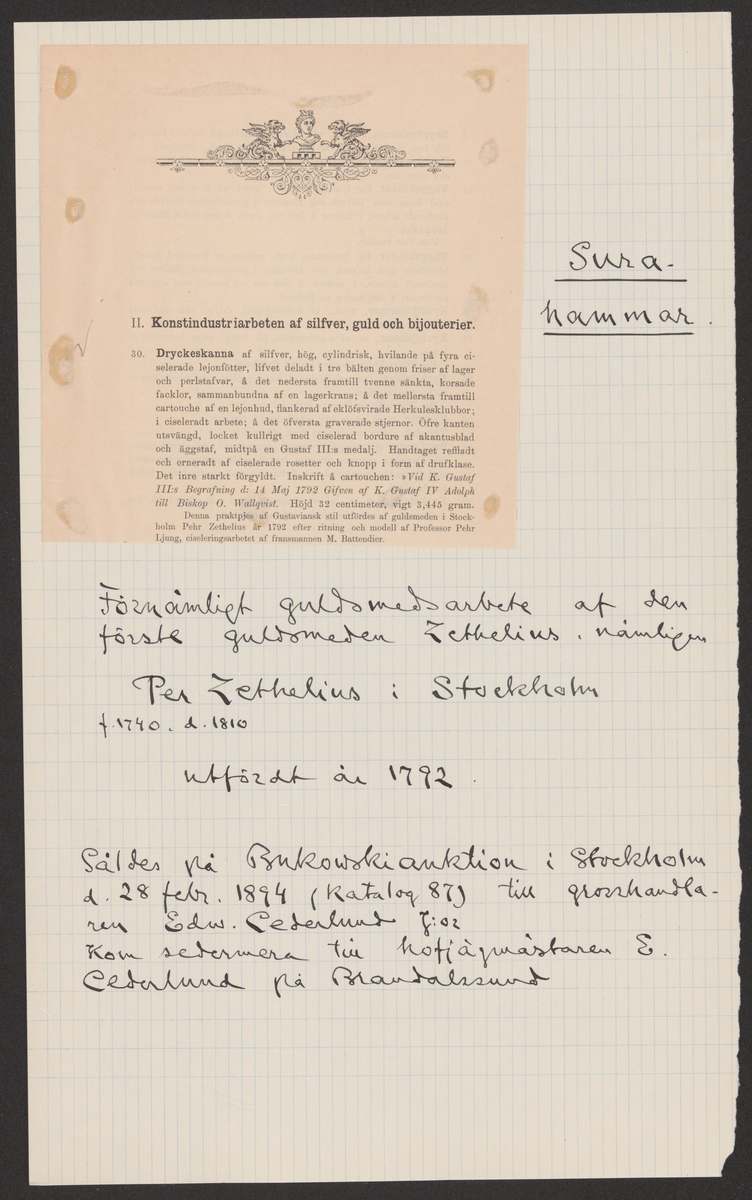 II. Konstindustriarbeten af silfver, guld och bijouterier.
30. Dryckeskanna af silfver, hög, cylindrisk, hvilande på fyra ci-
selerade lejonfötter, lifvet deladt i tre bälten genom friser af lager
och perlstafvar, å det nedersta framtill tvenne sänkta, korsade
facklor, sammanbundna af en lagerkrans; å det mellersta framtill
cartouche af en lejonhud, flankerad af eklöfsvirade Herkulesklubbor;
i ciseleradt arbete; å det öfversta graverade stjernor. Öfre kanten
utsvängd, locket kullrigt med ciselerad bordure af akantusblad
och äggstaf, midtpå en Gustaf III:s medalj. Handtaget reffladt
och orneradt af ciselerade rosetter och knopp i form af drufklase.
Det inre starkt förgyldt. Inskrift å cartouchen: »Vid K. Gustaf
III:s Begrafning d: 14 Maj 1792 Gifven af K. Gustaf IV Adolph
till Biskop O. Wallqvist. Höjd 32 centimeter, vigt 3,445 gram.
Denna praktpjes af Gustaviansk stil utfördes af guldsmeden i Stock-
holm Pehr Zethelius år 1792 efter ritning och modell af Professor Pehr
Ljung, ciseleringsarbetet af fransmannen M. Battendier.
Sura-
hammar.
Förnämligt guldsmedsarbete af den
förste guldsmeden Zethelius, nämligen
Per Zethelius i Stockholm
f. 1740. d. 1810
utfördt år 1792.
Såldes på Bukowskiauktion i Stockholm
d. 28 febr. 1894 (Katalog 87) till grosshandla-
ren Edw. Cederlund
Kom sedermera till hofjägmästaren E.
Cederlund på Brandalssund